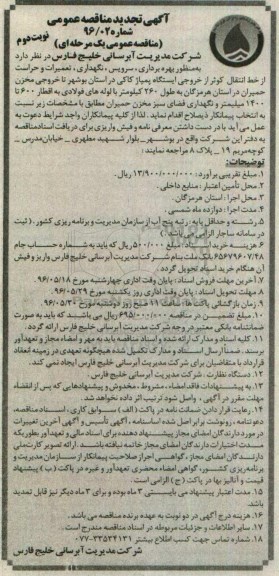 آگهی تجدید مناقصه عمومی
شماره ۹۶/۰۲
نوبت دوم
(مناقصه عمومی یک مرحله ای)
شرکت مدیریت آبرسانی خلیج فارس در نظر دارد
به منظور بهره برداری، سرویس، نگهداری، تعمیرات و حراست
از خط انتقال کوثر از خروجی ایستگاه پمپاژ کاکی در استان بوشهر تا خروجی مخزن
حمیران در استان هرمزگان به طول ۲۶۰ کیلومتر با لوله های فولادی به اقطار ۶۰۰ تا
۱۴۰۰ میلیمتر و نگهداری فضای سبز مخزن حمیران مطابق با مشخصات زیر نسبت
به انتخاب پیمانکار ذیصلاح اقدام نماید. لذا از کلیه پیمانکاران واجد شرایط دعوت به
عمل می آید با در دست داشتن معرفی نامه و فیش واریزی برای دریافت اسناد مناقصه
به دفتر این شرکت واقع در بوشهر_ بلوار شهید مطهری _ خیابان مدرس _
کوچه مریم ۱۹ _ پلاک ۸ مراجعه نمایند:
توضیحات:
۱. مبلغ تقریبی برآورد: ۱۳/۹۰۰/۰۰۰/۰۰۰ ریال.
۲. محل تأمین اعتبار: منابع داخلی.
۳. محل اجرا: استان هرمزگان.
۴. مدت اجرا: دوازده ماه شمسی
۵. رشته و حداقل پایه: رتبه پنج آب از سازمان مدیریت و برنامه ریزی کشور. (ثبت
در سامانه ساجار الزامی می باشد.)
۶. هزینه خرید اسناد: مبلغ ۵۰۰/۰۰۰ ریال که باید به شماره حساب جام
۶۵۶۷۹۶۰۷/۲۸ بانک ملت بنام شرکت مدیریت آبرسانی خلیج فارس واریز و فیش
آن هنگام خرید اسناد تحویل گردد.
۷. آخرین مهلت فروش اسناد: پایان وقت اداری چهارشنبه مورخ ۹۶/۰۵/۱۸
۸. مهلت تحویل اسناد: پایان وقت اداری روز یکشنبه مورخ ۹۶/۰۵/۲۹
۹. زمان بازگشائی پاکت ها: ساعت ۱۱ صبح روز دوشنبه مورخ ۹۶/۰۵/۳۰
۱۰. مبلغ تضمین در مناقصه ۶۹۵/۰۰۰/۰۰۰ ریال می باشد که باید به صورت
ضمانتنامه بانکی معتبر در وجه شرکت مدیریت آبرسانی خلیج فارس ارائه گردد.
۱۱. کلیه اسناد و مدارک ارائه شده و اسناد مناقصه باید به مهر و امضاء مجاز و تعهدآور
برسند. ضمناً ارسال اسناد و مدارک تکمیل شده هیچگونه تعهدی در زمینه انعقاد
قرارداد با متقاضیان برای شرکت مدیریت آبرسانی خلیج فارس ایجاد نمی کند.
۱۲. دستگاه نظارت: شرکت مدیریت آبرسانی خلیج فارس.
۱۳. به پیشنهادات فاقد امضاء، مشروط، مخدوش و پیشنهادهایی که پس از انقضاء
مهلت مقرر در آگهی، واصل شود ترتیب اثر داده نخواهد شد.
۱۴. رعایت قرار دادن ضمانت نامه در پاکت (الف) سوابق کاری، اسناد مناقصه،
دعوتنامه، رونوشت برابر اصل شده اساسنامه، آگهی تأسیس و آگهی آخرین تغییرات
در مورد دارندگان امضای مجاز پیشنهاد دهنده برای اسناد مالی و تعهدآور بطوریکه
مدت اختیارات دارندگان امضای مجاز خاتمه نیافته باشد. ارائه تصویر کارت ملی
دارندگان امضای مجاز، گواهی احراز صلاحیت پیمانکار از سازمان مدیریت و
برنامه ریزی کشور، گواهی امضاء محضری تعهدآور و غیره در پاکت (ب) پیشنهاد
قیمت و آنالیز بها در پاکت (ج) الزامی است.
۱۵. مدت اعتبار پیشنهاد می بایستی ۳ ماه بوده و برای ۳ ماه دیگر نیز قابل تمدید
باشد.
۱۶. هزینه درج آگهی در دو نوبت به عهده برنده مناقصه می باشد.
۱۷. سایر اطلاعات و جزئیات مربوطه در اسناد مناقصه مندرج است.
۱۸. شماره تماس جهت کسب اطلاع بیشتر ۳۳۵۳۴۱۳۱-۰۷۷
شرکت مدیریت آبرسانی خلیج فارس